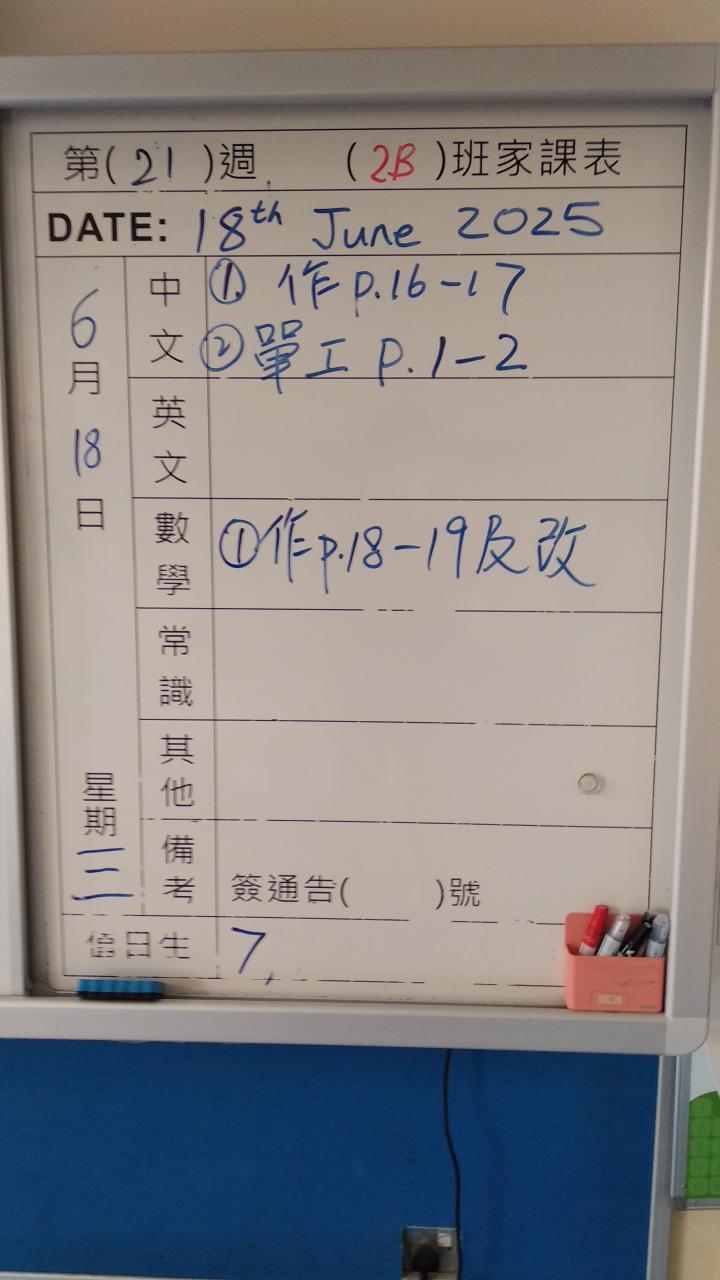 第(21)週 (2B)班家課表
DATE: 18th June 2025
6月18日 星期三
中文 ① 作p.16-17
② 單工 p.1-2
英文
數學 ①作p.18-19及改
常識
其他
備考 簽通告( )號
值日生 7